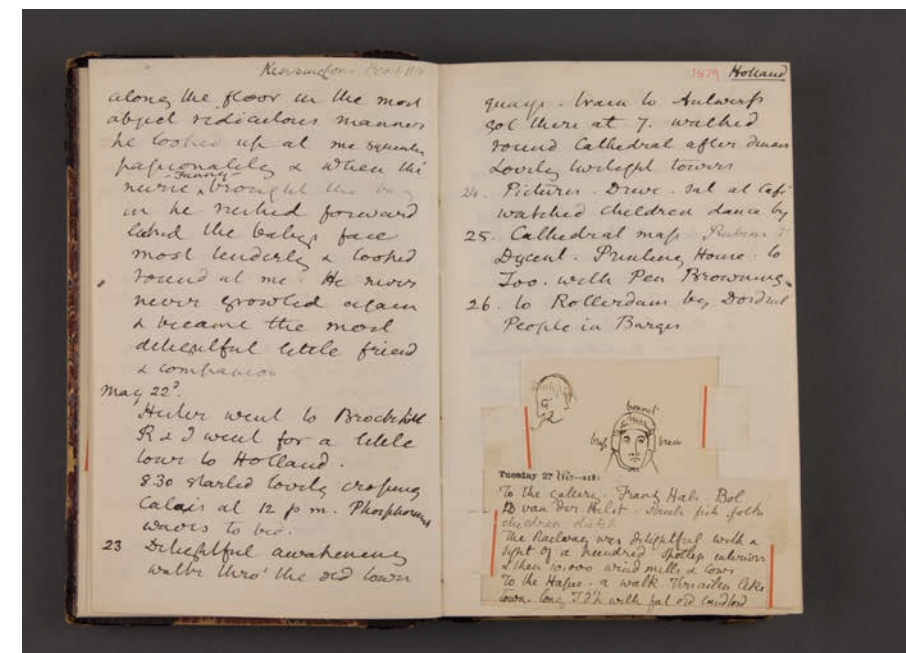 Kensington
along the floor in the most
abject ridiculous manner
he looked up at me
passionately & when the
nurse Fanny brought the baby
in he rushed forward
licked the babys face
most tenderly & looked
round at me. He never
never growled again
& became the most
delightful little friend
& companion
May 22d
went to
R & I went for a little
tour to Holland.
8.30 started lovely crossing
Calais at 12 pm.
waves to bed.
23 Delightful awakening
walk thro' the old town
1879 Holland
quays. train to Antwerp
got there at 7. walked
round Cathedral after dinner
Lovely twilight towers
24. Pictures. Drive. sat at Café
watched children dance by
25. Cathedral mass Rubens
Printing House. to
Zoo. with Pen Browning
26. to Rotterdam by
People in Barges
bonnet
brass brass
Tuesday 27
To the gallery. Franz Hals. Bol
van der Helst. fish
children
The Railway was delightful with a
sight of a hundred spotless interiors
& then 10,000 wind mills & cows
To the Hague. a walk. Versailles like
town. long T d'h with old landlord